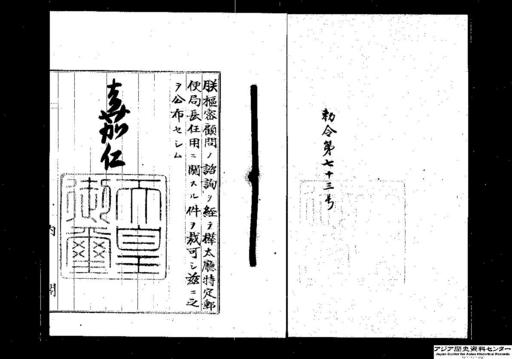 勅令第七十三号
朕樞密顧問ノ諮詢ヲ経テ樺太廳特定郵
便局長任用ニ關スル件ヲ裁可シ茲ニ之
ヲ公布セシム
嘉仁
天皇
御璽
内閣
アジア歴史資料センター
Japan Center for Asian Historical Records